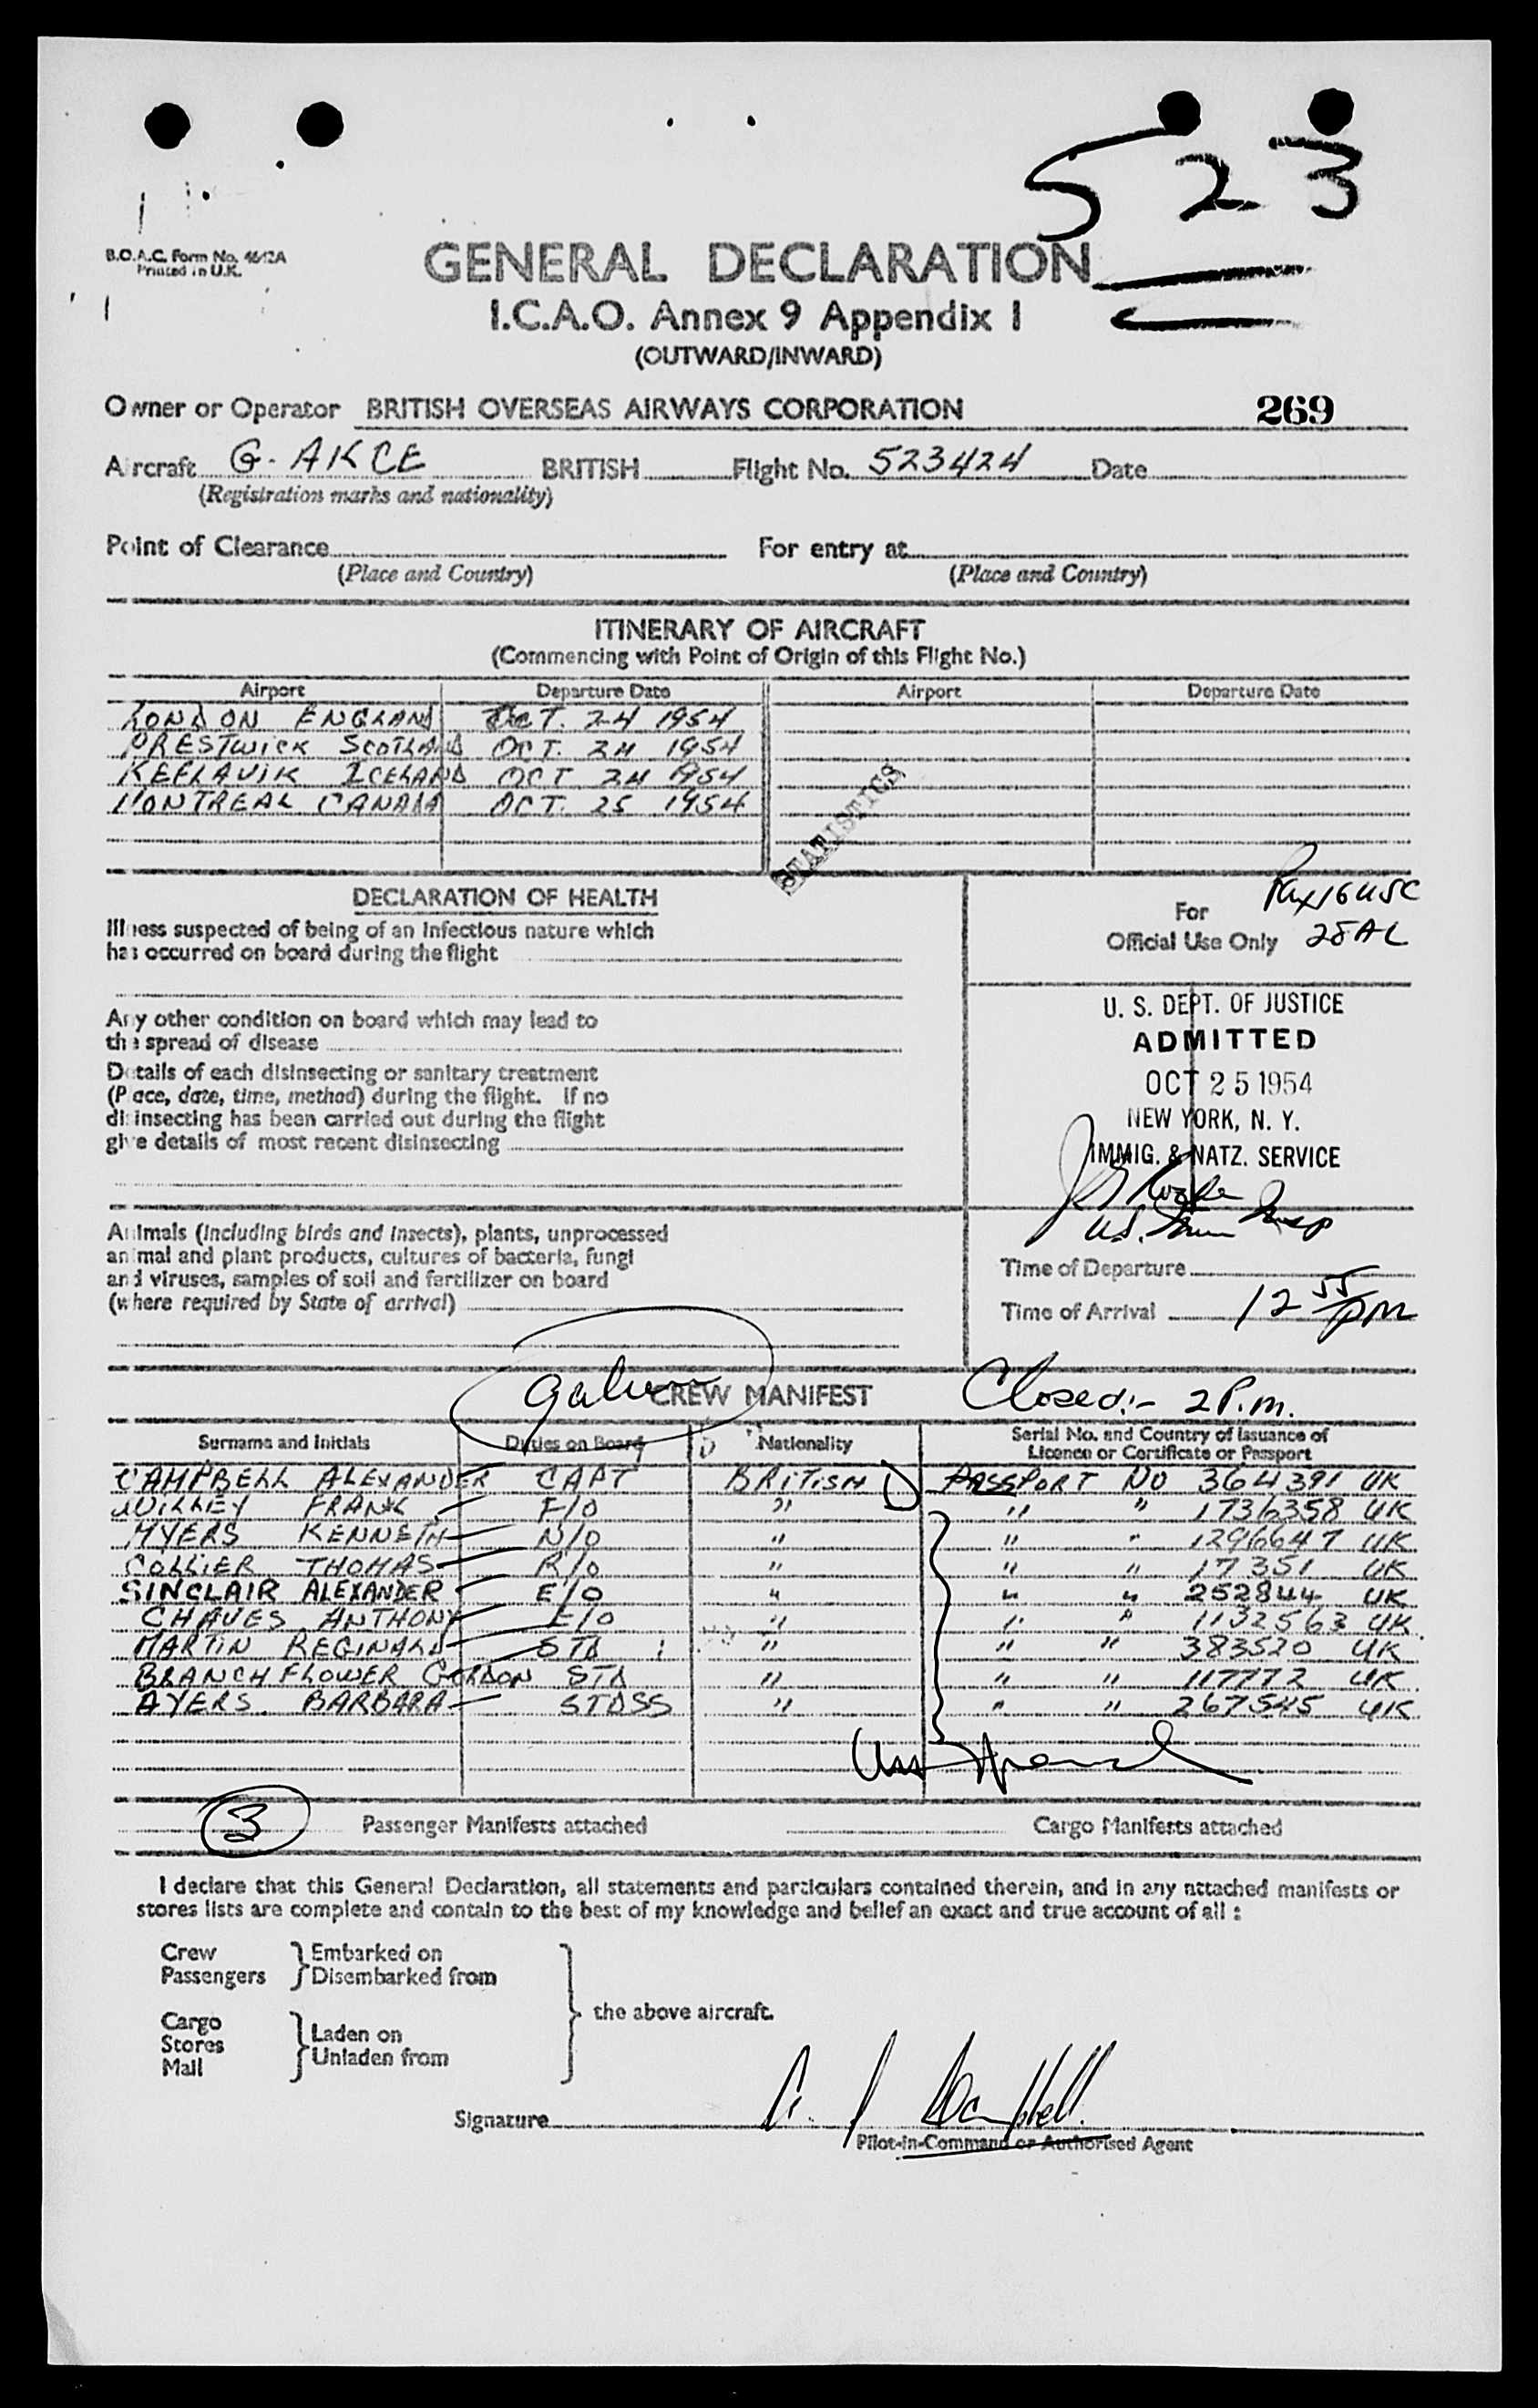 523
B.O.A.C. Form No. 4642A
Printed in U.K.
GENERAL DECLARATION
I.C.A.O. Annex 9 Appendix I
(OUTWARD/INWARD)
Owner or Operator BRITISH OVERSEAS AIRWAYS CORPORATION 269
Aircraft G-AKCE BRITISH Flight No. 523424 Date
(Registration marks and nationality)
Point of Clearance For entry at
(Place and Country) (Place and Country)
ITINERARY OF AIRCRAFT
(Commencing with Point of Origin of this Flight No.)
Airport Departure Date Airport Departure Date
LONDON ENGLAND OCT. 24 1954
PRESTWICK SCOTLAND OCT. 24 1954
KEFLAVIK ICELAND OCT 24 1954
MONTREAL CANADA OCT. 25 1954
STATISTICS
DECLARATION OF HEALTH
Illness suspected of being of an infectious nature which
has occurred on board during the flight
Any other condition on board which may lead to
the spread of disease
Details of each disinsecting or sanitary treatment
(Place, date, time, method) during the flight. If no
disinsecting has been carried out during the flight
give details of most recent disinsecting
Animals (including birds and insects), plants, unprocessed
animal and plant products, cultures of bacteria, fungi
and viruses, samples of soil and fertilizer on board
(where required by State of arrival)
For Pax 16 USC
Official Use Only 28 AL
U. S. DEPT. OF JUSTICE
ADMITTED
OCT 25 1954
NEW YORK, N. Y.
IMMIG. & NATZ. SERVICE
U.S. Imm Insp
Time of Departure
Time of Arrival 12 55 pm
CREW MANIFEST Closed:- 2 P.m.
Surname and Initials Duties on Board Nationality Serial No. and Country of Issuance of
Licence or Certificate or Passport
CAMPBELL ALEXANDER CAPT BRITISH PASSPORT NO 364391 UK
WILLEY FRANK F/O " " " 1736358 UK
MYERS KENNETH N/O " " " 1296647 UK
COLLIER THOMAS R/O " " " 17351 UK
SINCLAIR ALEXANDER E/O " " " 252844 UK
CHAVES ANTHONY E/O " " " 1132563 UK
MARTIN REGINALD STD " " " 383520 UK
BRANCHFLOWER GORDON STD " " " 117772 UK
AYERS BARBARA STDSS " " " 267545 UK
3 Passenger Manifests attached Cargo Manifests attached
I declare that this General Declaration, all statements and particulars contained therein, and in any attached manifests or
stores lists are complete and contain to the best of my knowledge and belief an exact and true account of all :
Crew Embarked on
Passengers Disembarked from
the above aircraft.
Cargo
Stores Laden on
Mail Unladen from
Signature A. J. Campbell
Pilot-in-Command or Authorised Agent